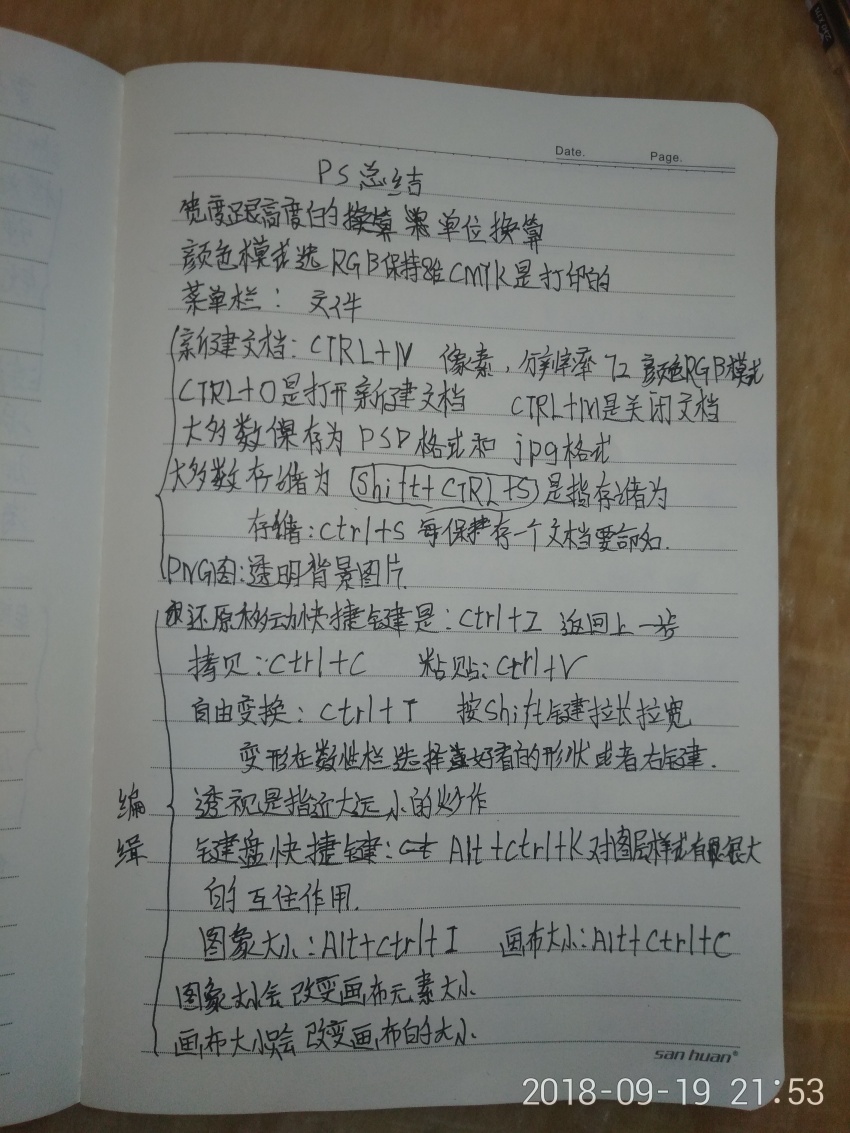 Date.    Page.
PS总结
宽度跟高度的换算 单位换算
颜色模式选RGB保持 CMYK是打印的
菜单栏: 文件
新建文档: CTRL+N 像素, 分辨率 72 颜色RGB模式
CTRL+O是打开新建文档 CTRL+W是关闭文档
大多数保存为PSD格式和jpg格式
大多数存储为 Shift+CTRL+S 是指存储为
存储: ctrl+s 每保存一个文档要命名.
PNG图: 透明背景图片.
还原移动快捷键是: ctrl+Z 返回上一步
拷贝: Ctrl+C 粘贴: Ctrl+V
自由变换: Ctrl+T 按Shift键拉长拉宽
变形在数性栏选择 好看的形状或者右键.
编辑
透视是指近大远小的 作
键盘快捷键: Alt+ctrl+K 对图层样式有很大
的互住作用.
图象大小: Alt+ctrl+I 画布大小: Alt+Ctrl+C
图象大小会改变画布元素大小
画布大小只会改变画布的大小
san huan®
2018-09-19 21:53